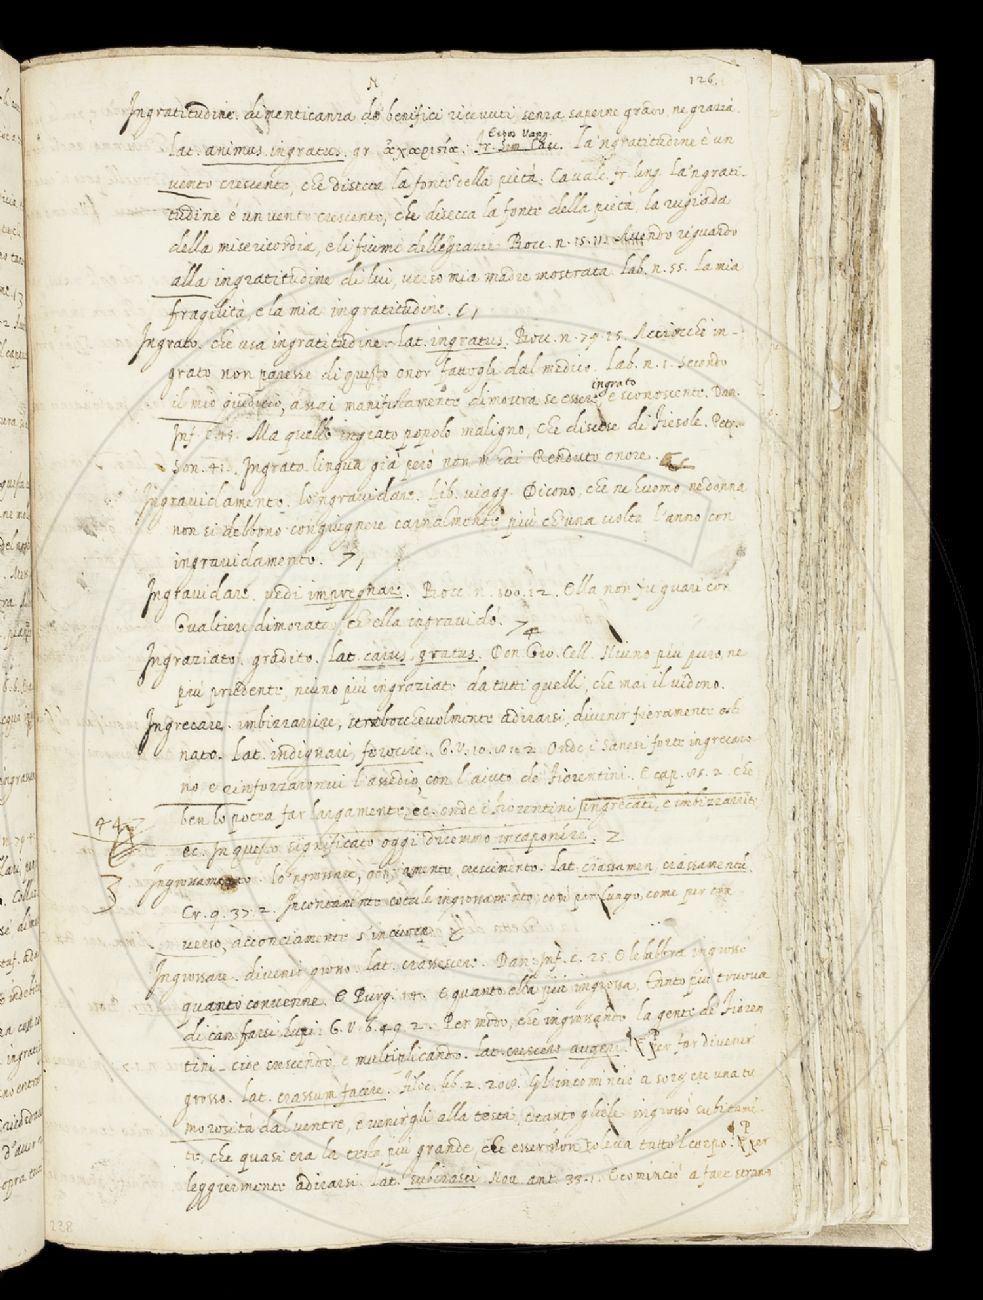 N
126.
Ingratitudine. dimenticanza de benifici ricevuti, senza saperne grado, ne grazia.
Lat. animus ingratus. gr. ἀχαριστία.
Fr. Sim. Casc. La 'ngratitudine è un
vento crescente, che disecca la fonte della pietà. Cavalc. fr. ling. La 'ngrati-
tudine é un vento crescente, che disecca la fonte della pietà, la rugiada
della misericordia, e li fiumi delle grazie. Bocc. n. 15. Avendo riguardo
alla ingratitudine di lui, verso mia madre mostrata. Lab. n. 55. La mia
fragilità, e la mia ingratitudine.
Ingrato. che usa ingratitudine. lat. ingratus. Bocc. n. 79. 25. Acciocche in-
grato non paresse di questo onor fattogli dal medico. Lab. n. 1. Secondo
ingrato
il mio giudicio, assai manifestamente dimostra se essere e sconoscente. Dan.
Inf. c. 15. Ma quello ingrato popolo maligno, che discese di Fiesole. Petr.
Son. Ingrato lingua già però non m' hai Renduto onore.
Ingravidamento. lo ngravidare. Lib. viagg. Dicono, che ne huomo ne donna
non si debbono congiugnere carnalmente più che una volta l'anno con
ingravidamento.
Ingravidare. vedi impregnare. Bocc. n. 100. 12. Ella non fu guari con
Gualtieri dimorata, ch' ella ingravidò.
Ingraziato. gradito. Lat. carus, gratus. Don Gio. Cell. Niuno più puro, ne
più prudente, neuno più ingraziato da tutti quelli, che mai il vidono.
Ingrecare. imbizzarrire, strabocchevolmente adirarsi, divenir fieramente osti-
nato. Lat. indignari, ferocire. G. V. 10. Onde i Sanesi forte ingrecaro-
no e rinforzaronvi l'assedio, con l'aiuto de Fiorentini. E cap. 2. che
ben lo potea far largamente, ec. onde i Fiorentini ingrecati, e imbizzarriti
ec. In questo significato oggi dicemmo incaponire.
Ingrossamento. lo ngrossare, gonfiamento, crescimento. Lat. crassamen, crassamentum.
Cr. 9. 37. 2. Incontanente cotale ingrossamento, così per lungo, come per tra-
verso, acconciamente s'incuoca
Ingrossare. divenir grosso. Lat. crassescere. Dan. Inf. c. 25. E le labbra ingrossò
quanto convenne. E Purg. 14. E quanto ella più ingrossa, Tanto più truova
di can farsi lupi. G. V. 6. 49. 2. Per modo, che ingrossando la gente de' Fioren-
tini, cioè crescendo, e multiplicando. Lat. crescere, augeri. Per far divenir
grosso. Lat. crassum facere. Filoc. lib. 2. Gl' incominciò a sorgere una tu-
morosità dal ventre, e venirgli alla testa, e tanto gliele ingrossò subitamen-
te, che quasi era la testa più grande che esser non soleva tutto 'l corpo. Per
leggiermente adirarsi. Lat. subirasci. Nov. ant. 35. 1. E cominciò a fare strano
238